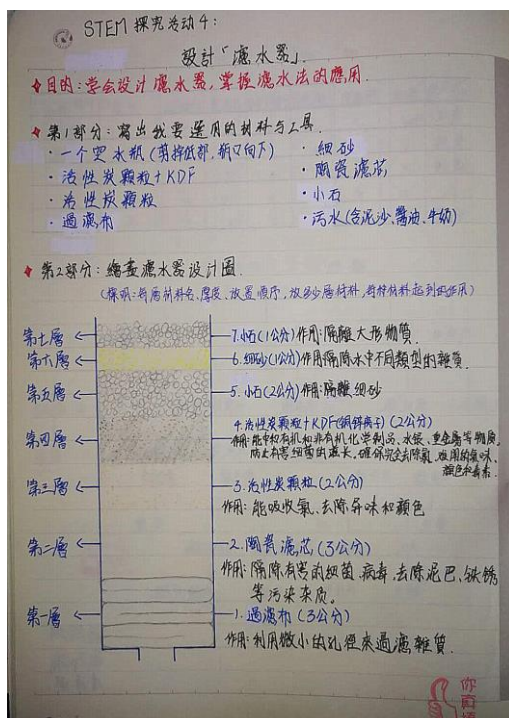 STEM 探究活动4:
設計「濾水器」.
目的:学会设计濾水器,掌握濾水法的應用.
第1部分:寫出我要選用的材料与工具.
·一个空水瓶(剪掉低部,瓶口向下)
·活性炭顆粒+KDF
·活性炭顆粒
·過濾布
·細砂
·陶瓷濾芯
·小石
·污水(含泥沙、醬油、牛奶)
第2部分:繪畫濾水器設計圖.
(標明:每層材料名、厚度、放置順序,放多少層材料,每种材料起到的作用)
第七層
7.小石(1公分)作用:隔離大形物質.
第六層
6.細砂(1公分)作用隔除水中不同類型的雜質.
第五層
5.小石(2公分)作用:隔離細砂
第四層
4.活性炭顆粒+KDF(銅鋅离子)(2公分)
作用:能中和有机和非有机化学制品、水銀、重金屬等物質,
防止有害細菌的滋長,確保完全去除氯、难闻的氣味、
顏色和毒素.
第三層
3.活性炭顆粒(2公分)
作用:能吸收氯、去除异味和顏色
第二層
2.陶瓷濾芯(3公分)
作用:隔除有害的细菌、病毒,去除泥巴、铁锈
等污染杂质。
第一層
1.過濾布(3公分)
作用:利用微小的孔徑來過濾雜質.
你真棒